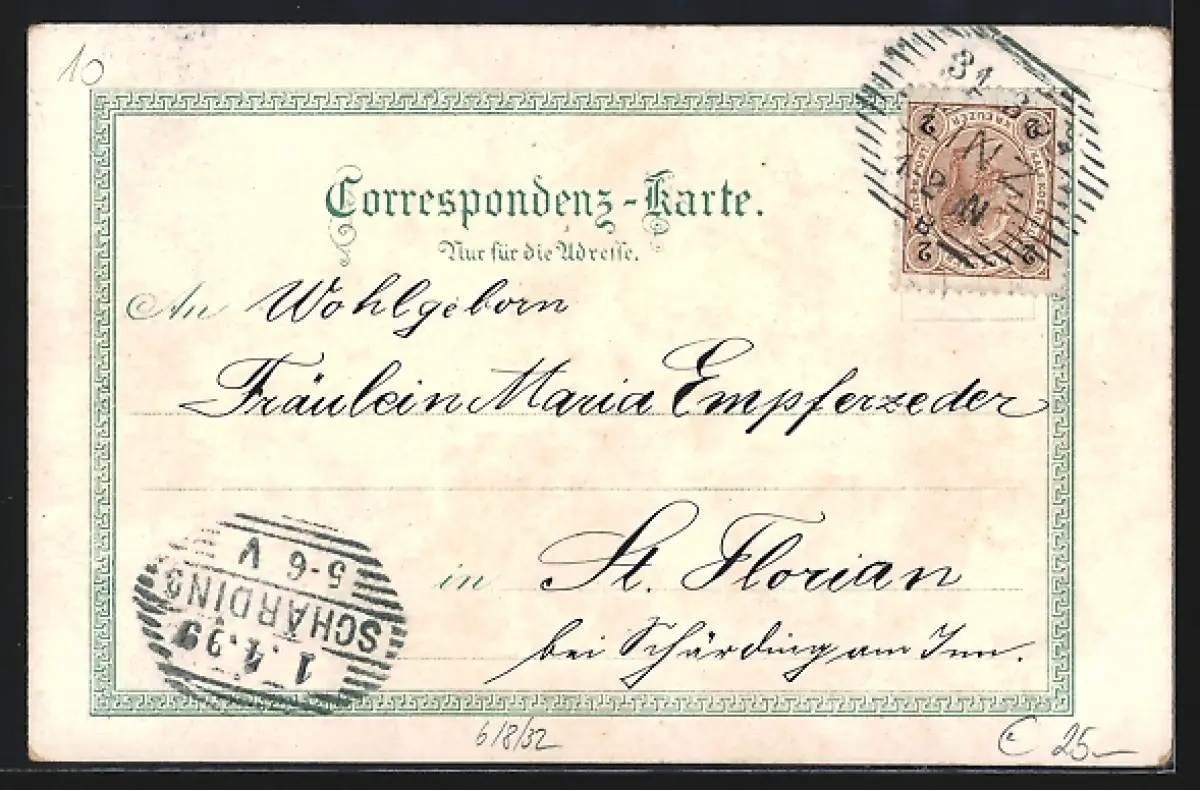 10
Correspondenz-Karte.
Nur für die Adresse.
An Wohlgeborn
Fräulein Maria Empferzeder
in St. Florian
bei Schärding am Inn.
SCHÄRDING
1.4.99
5-6 V
31
2 2
2 2
6/8/32
€ 25—